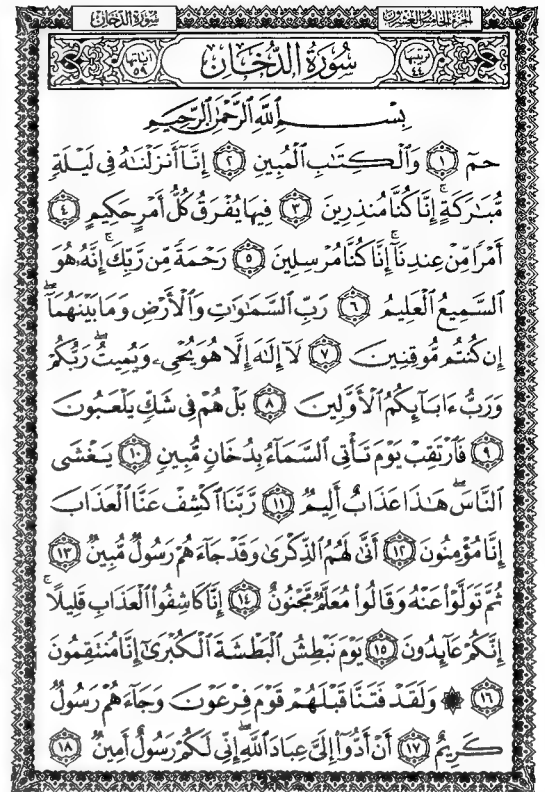 الجزء الخامس والعشرون سورة الدخان
ترتيبها ٤٤ سُورَةُ الدُّخَانِ آياتها ٥٩
بِسْمِ ٱللَّهِ ٱلرَّحْمَٰنِ ٱلرَّحِيمِ
حمٓ ۝١ وَٱلْكِتَٰبِ ٱلْمُبِينِ ۝٢ إِنَّآ أَنزَلْنَٰهُ فِى لَيْلَةٍ
مُّبَٰرَكَةٍ ۚ إِنَّا كُنَّا مُنذِرِينَ ۝٣ فِيهَا يُفْرَقُ كُلُّ أَمْرٍ حَكِيمٍ ۝٤
أَمْرًا مِّنْ عِندِنَآ ۚ إِنَّا كُنَّا مُرْسِلِينَ ۝٥ رَحْمَةً مِّن رَّبِّكَ ۚ إِنَّهُۥ هُوَ
ٱلسَّمِيعُ ٱلْعَلِيمُ ۝٦ رَبِّ ٱلسَّمَٰوَٰتِ وَٱلْأَرْضِ وَمَا بَيْنَهُمَآ ۖ
إِن كُنتُم مُّوقِنِينَ ۝٧ لَآ إِلَٰهَ إِلَّا هُوَ يُحْىِۦ وَيُمِيتُ ۖ رَبُّكُمْ
وَرَبُّ ءَابَآئِكُمُ ٱلْأَوَّلِينَ ۝٨ بَلْ هُمْ فِى شَكٍّ يَلْعَبُونَ
۝٩ فَٱرْتَقِبْ يَوْمَ تَأْتِى ٱلسَّمَآءُ بِدُخَانٍ مُّبِينٍ ۝١٠ يَغْشَى
ٱلنَّاسَ ۖ هَٰذَا عَذَابٌ أَلِيمٌ ۝١١ رَّبَّنَا ٱكْشِفْ عَنَّا ٱلْعَذَابَ
إِنَّا مُؤْمِنُونَ ۝١٢ أَنَّىٰ لَهُمُ ٱلذِّكْرَىٰ وَقَدْ جَآءَهُمْ رَسُولٌ مُّبِينٌ ۝١٣
ثُمَّ تَوَلَّوْا۟ عَنْهُ وَقَالُوا۟ مُعَلَّمٌ مَّجْنُونٌ ۝١٤ إِنَّا كَاشِفُوا۟ ٱلْعَذَابِ قَلِيلًا ۚ
إِنَّكُمْ عَآئِدُونَ ۝١٥ يَوْمَ نَبْطِشُ ٱلْبَطْشَةَ ٱلْكُبْرَىٰٓ إِنَّا مُنتَقِمُونَ
۝١٦ ۞ وَلَقَدْ فَتَنَّا قَبْلَهُمْ قَوْمَ فِرْعَوْنَ وَجَآءَهُمْ رَسُولٌ
كَرِيمٌ ۝١٧ أَنْ أَدُّوٓا۟ إِلَىَّ عِبَادَ ٱللَّهِ ۖ إِنِّى لَكُمْ رَسُولٌ أَمِينٌ ۝١٨